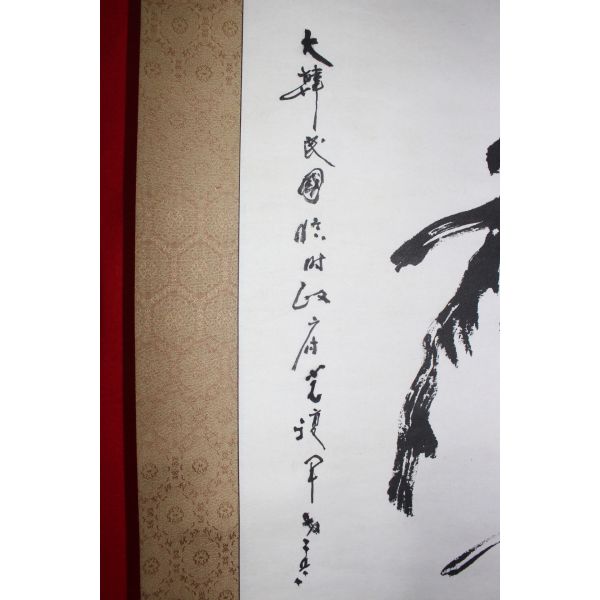 大韓民國臨時政府光復軍